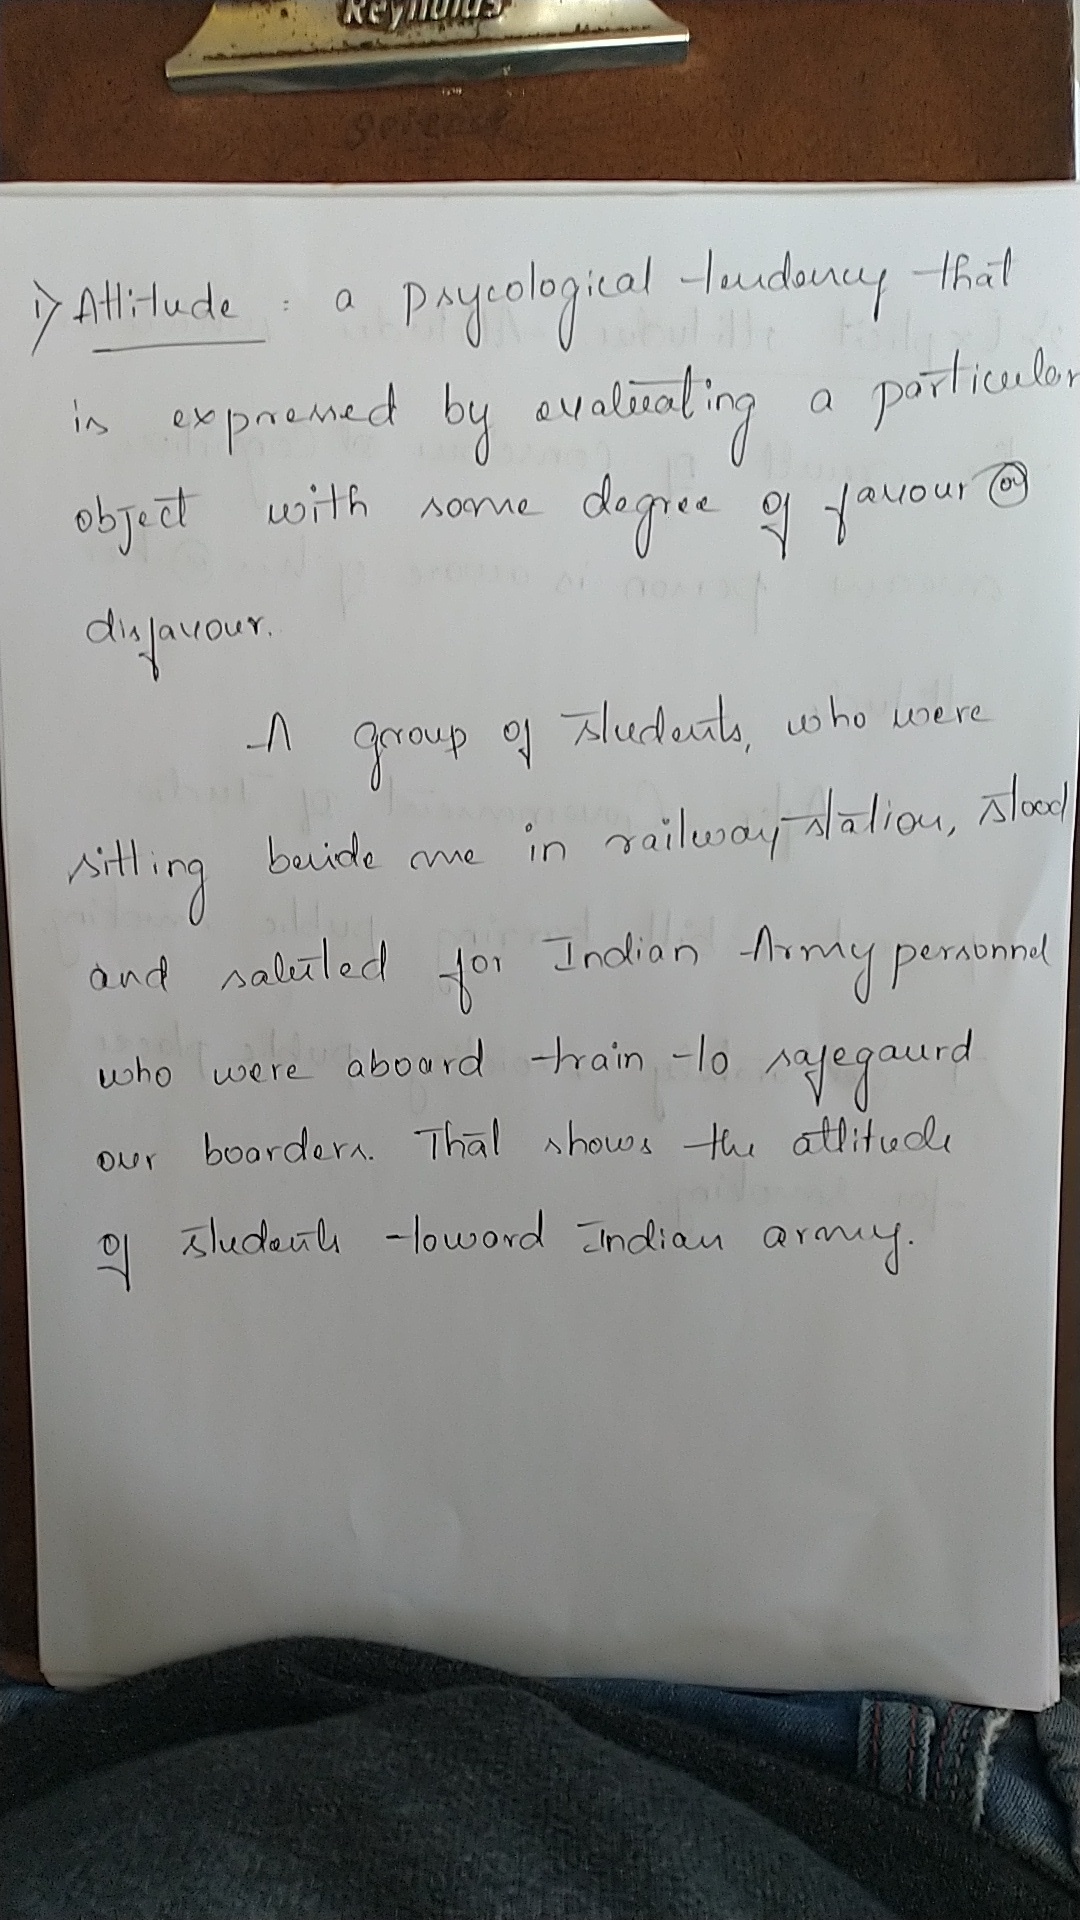 Reynolds
i) Attitude : a psycological tendency that
is expressed by evaluating a particular
object with some degree of favour or
disfavour.
A group of students, who were
sitting beside me in railway station, stood
and saluted for Indian Army personnel
who were aboard train to safegaurd
our boarders. That shows the attitude
of students toward Indian army.